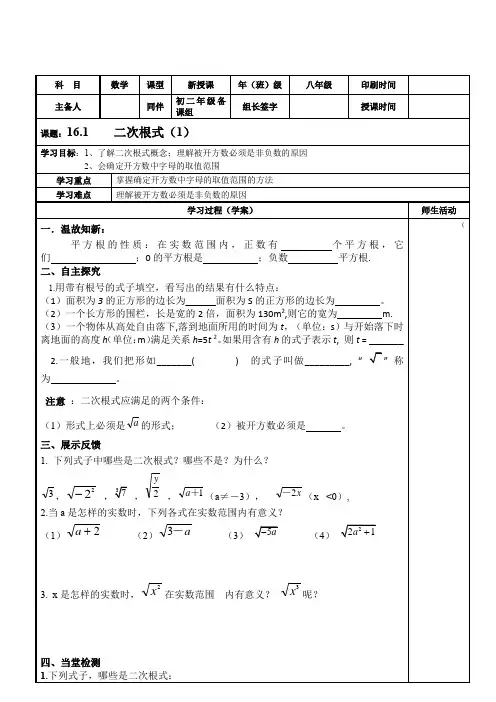 科 目 数学 课型 新授课 年（班）级 八年级 印刷时间
主备人 同伴 初二年级备课组 组长签字 授课时间
课题：16.1 二次根式（1）
学习目标：1、了解二次根式概念；理解被开方数必须是非负数的原因
2、会确定开方数中字母的取值范围
学习重点 掌握确定开方数中字母的取值范围的方法
学习难点 理解被开方数必须是非负数的原因
学习过程（学案） 师生活动
一．温故知新： （
平方根的性质：在实数范围内，正数有________个平方根，它
们________；0的平方根是________；负数________平方根.
二、自主探究
1.用带有根号的式子填空，看写出的结果有什么特点：
（1）面积为3的正方形的边长为______面积为S的正方形的边长为________。
（2）一个长方形的围栏，长是宽的2倍，面积为130m²,则它的宽为________m.
（3）一个物体从高处自由落下,落到地面所用的时间为t，(单位：s）与开始落下时
离地面的高度h(单位：m)满足关系h=5t²。如果用含有h的式子表示t, 则t=______
2.一般地，我们把形如______( ) 的式子叫做________，“√”称
为____________。
注意：二次根式应满足的两个条件：
（1）形式上必须是√a的形式； （2）被开方数必须是______。
三、展示反馈
1. 下列式子中哪些是二次根式？哪些不是？为什么？
√3，√−2²，∛7，√(y/2)，√(a+1)（a≠－3）， √(−2x)（x <0），
2.当a是怎样的实数时，下列各式在实数范围内有意义？
（1）√(a+2) （2）√(3−a) （3）√(−5a) （4）√(2a²+1)
3. x是怎样的实数时，√x²在实数范围 内有意义？ √x³呢？
四、当堂检测
1.下列式子，哪些是二次根式：